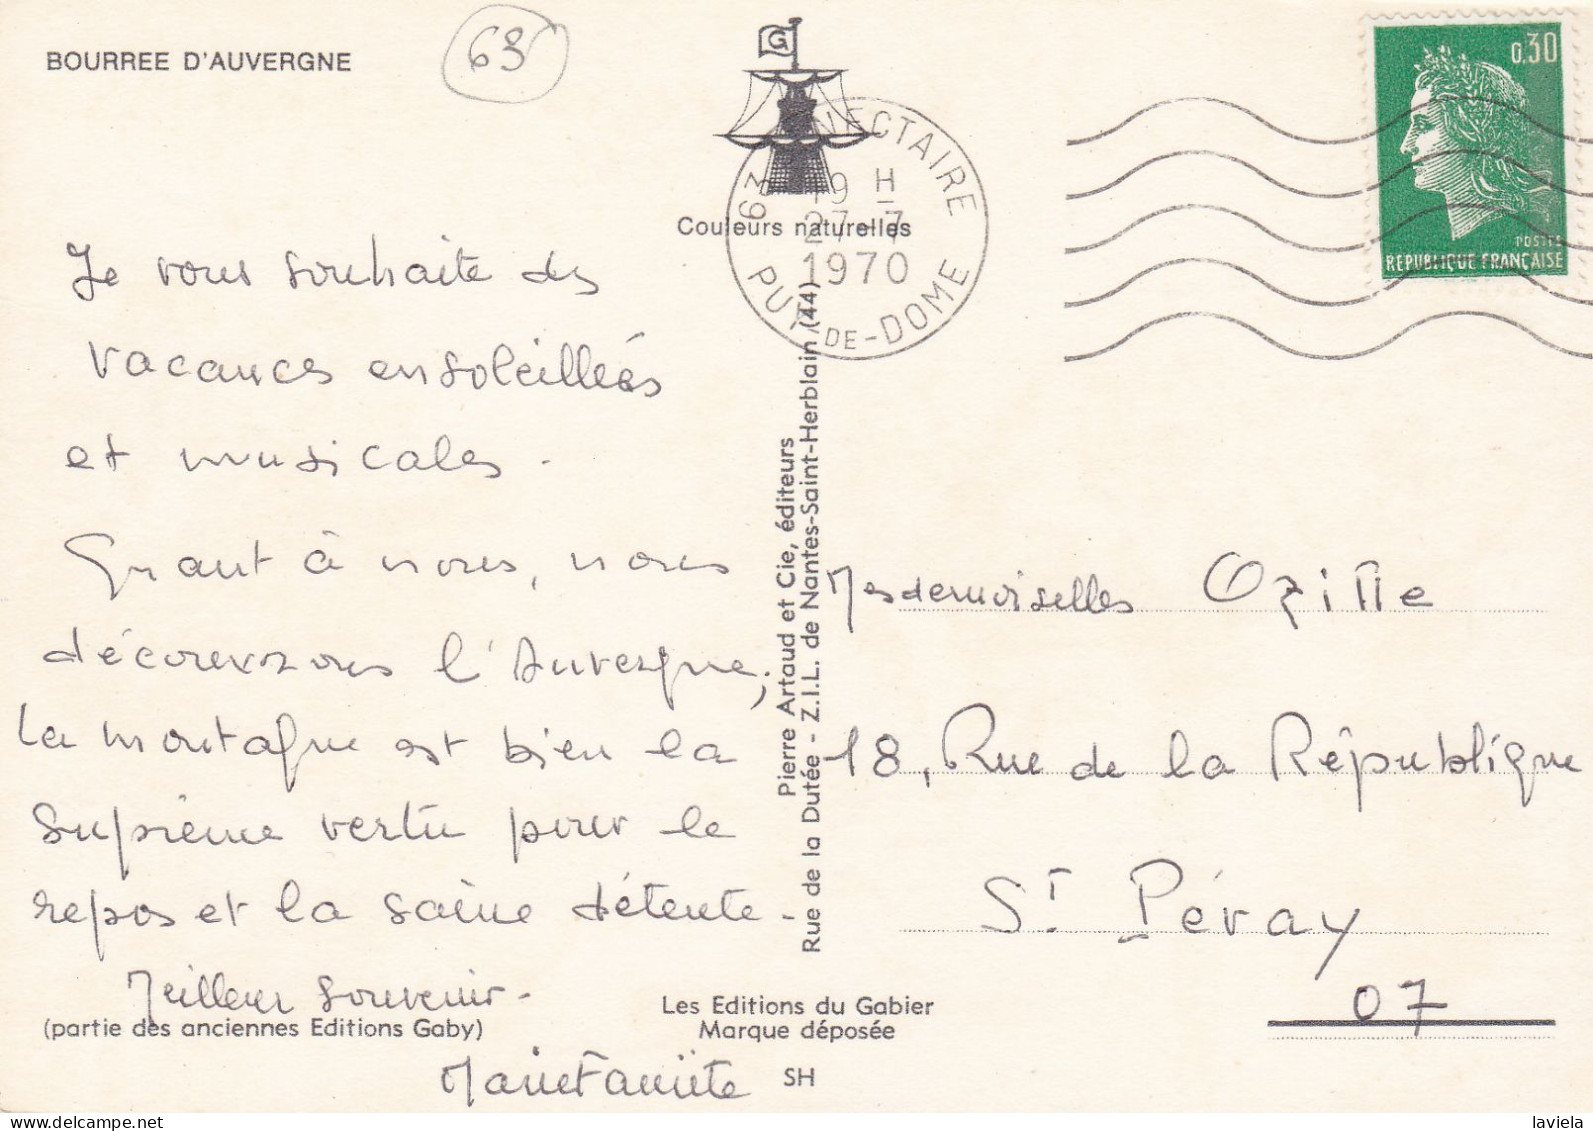 BOURREE D'AUVERGNE
63
G
Couleurs naturelles
63 NECTAIRE
19 H
27-7
1970
PUY-DE-DOME
0,30
POSTES
REPUBLIQUE FRANÇAISE
Je vous souhaite des
vacances ensoleillées
et musicales.
Quant à nous, nous
découvrons l'Auvergne,
La montagne est bien la
suprême vertu pour le
repos et la saine détente.
Meilleur souvenir.
Pierre Artaud et Cie, éditeurs
Rue de la Dutée - Z.I.L. de Nantes-Saint-Herblain (44)
Mesdemoiselles Ozille
18, Rue de la République
St Péray
07
(partie des anciennes Editions Gaby)
Les Editions du Gabier
Marque déposée
SH
delcampe.net
laviela